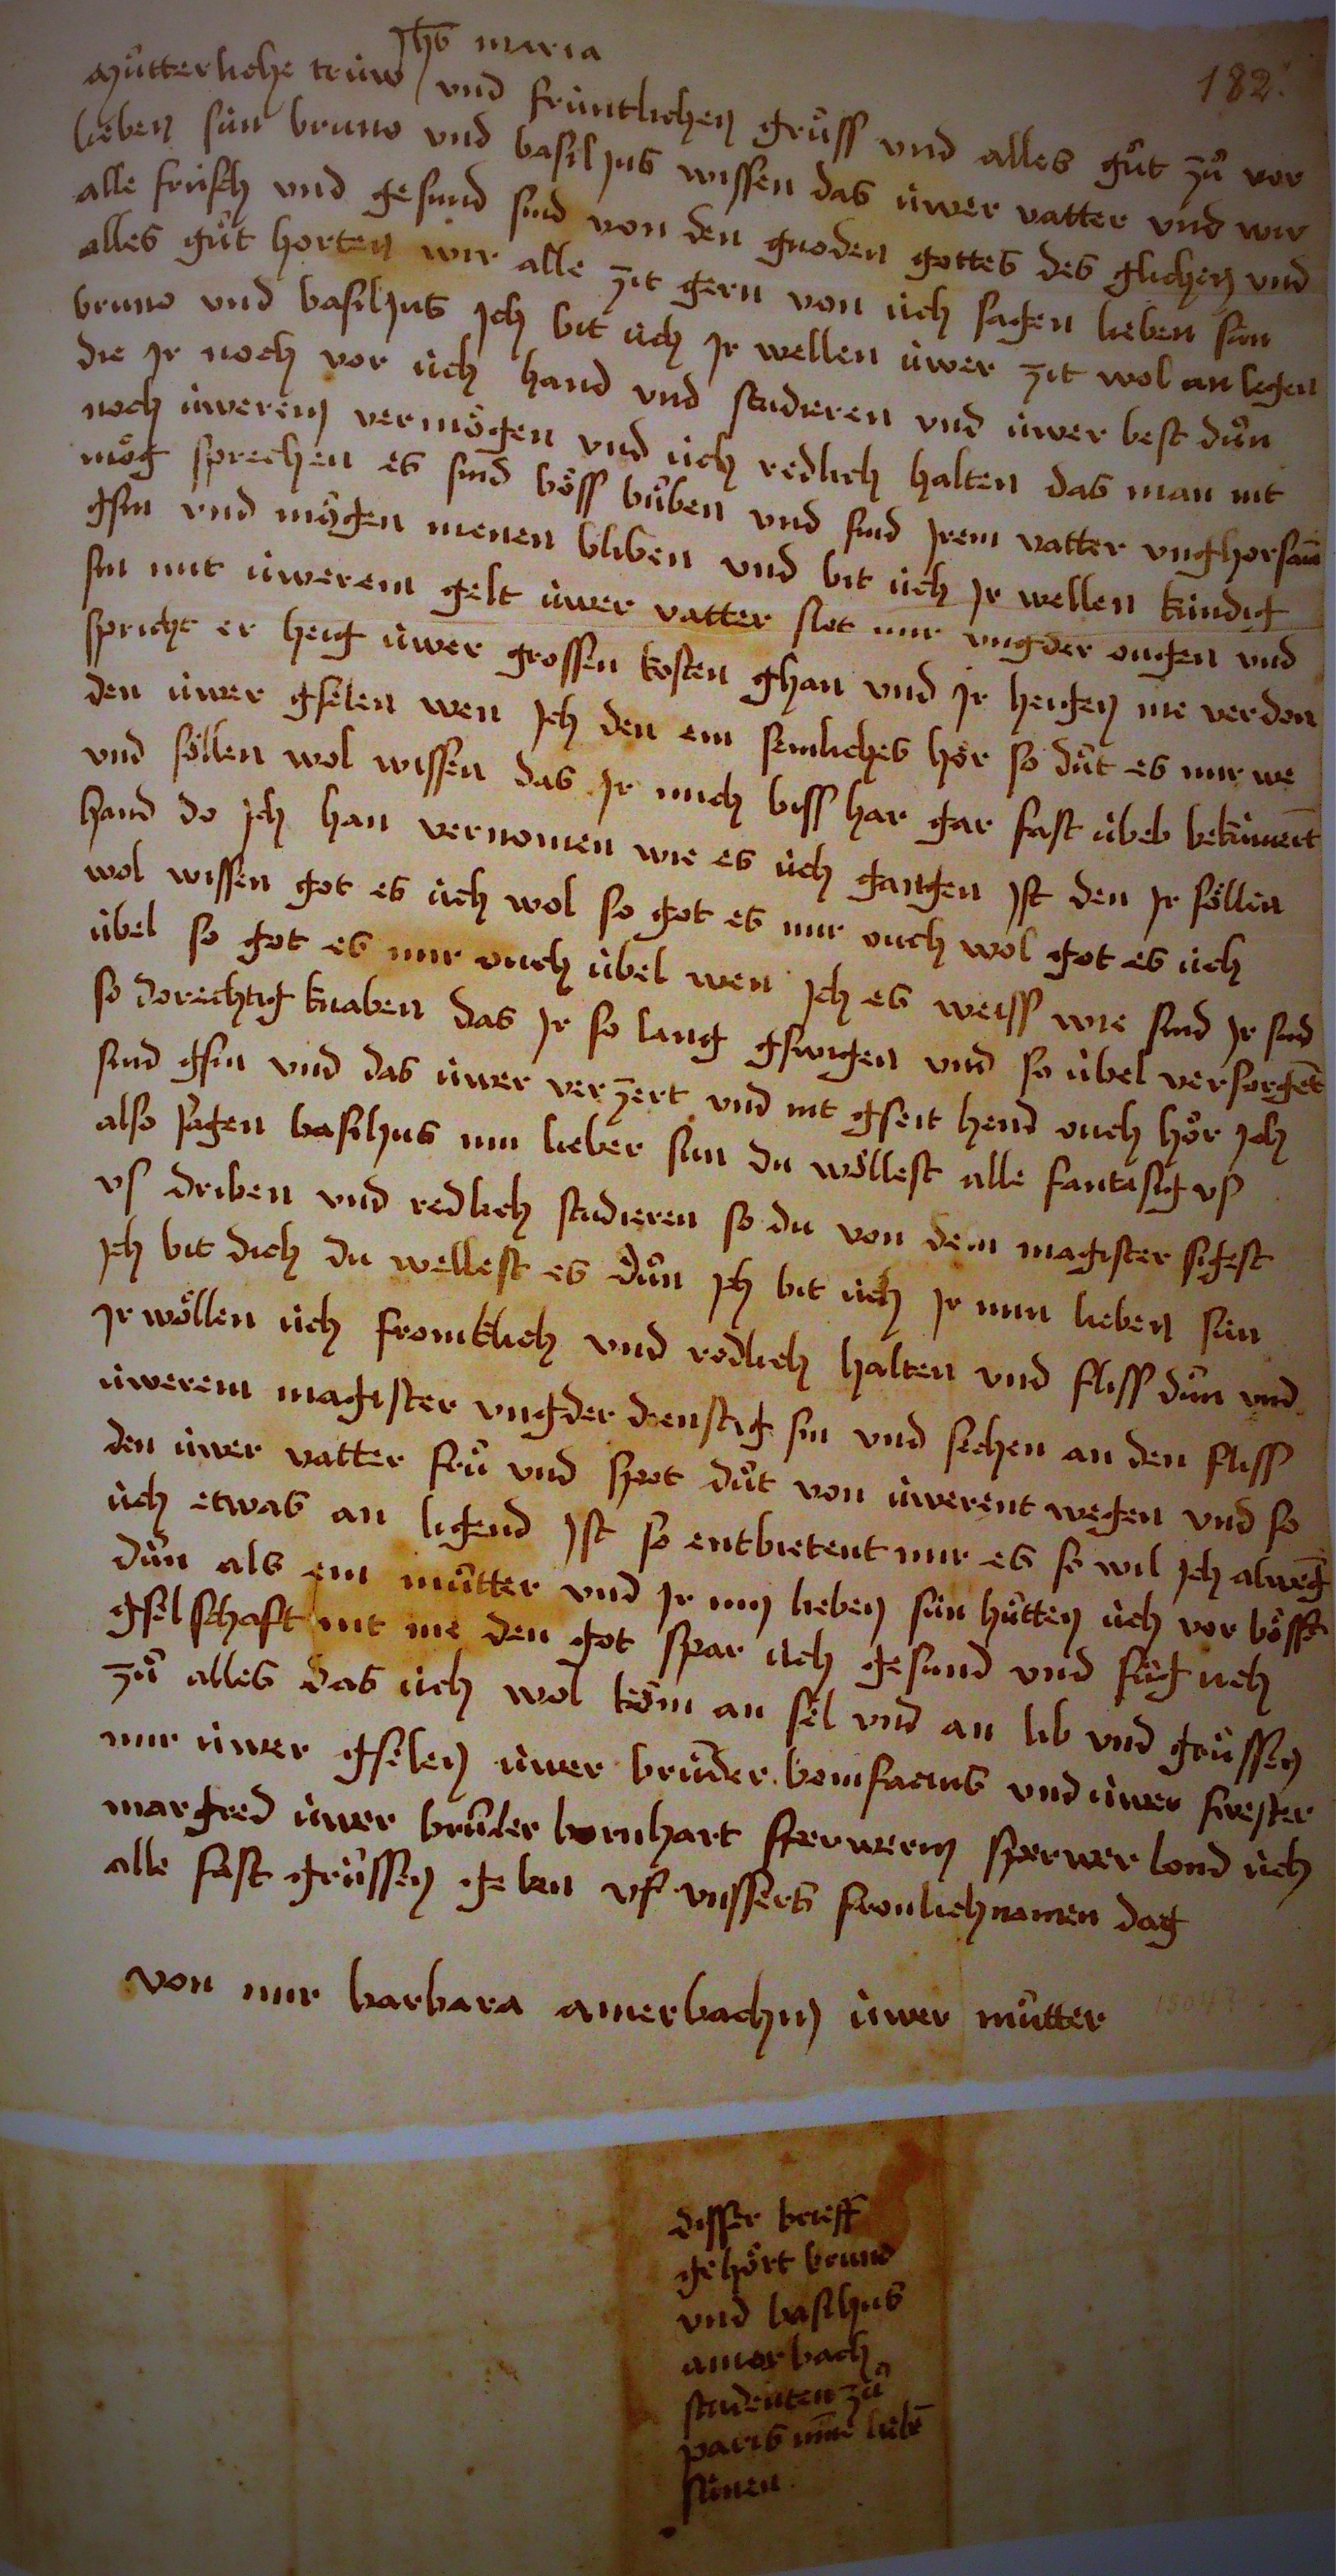 Jhs maria
182.
Můtterliche trüw und früntlichen grůss und alles gůt zů vor
lieben sün bruno und basilius wissen das üwer vatter und wir
alle früsch und gesund sind von den gnoden gottes des glichen und
alles gůt horten wir alle zit gern von üch sagen lieben sün
bruno und basilius Ich bit üch Ir wellen üwer zit wol an legen
die Ir noch vor üch hand und studieren und üwer best důn
noch üwerem vermögen und üch redlich halten das man nit
mög sprechen es sind böss bůben und sind Irem vatter unghorsam̄
gsin und mögen nienen bliben und bit üch Ir wellen kündig
sin mit üwerem gelt üwer vatter slot mir ungder ougen und
spricht er heig üwer grossen kosten ghan und Ir heigen me verdon
den üwer gselen wen Ich den ein semliches hör so důt es mir we
und söllen wol wissen das Ir mich biss har gar fast übeb bekümert
hand do Ich han vernomen wie es üch gangen Ist den Ir söllen
wol wissen got es üch wol so got es mir ouch wol got es üch
übel so got es mir ouch übel wen Ich es weiss wie sind Ir sind
so dorechtig knaben das Ir so lang gswigen und so übel versorget
sind gsin und das üwer verzert und nit gseit hend ouch hör Ich
also sagen basilius min lieber sun du wöllest alle fantasig us
us driben und redlich studieren so du von dem magister sigest
Ich bit dich du wellest es důn Ich bit üch Ir min lieben sün
Ir wöllen üch fromklich und redlich halten und fliss důn und
üwerem magister ungder dienstig sin und sechen an den fliss
den üwer vatter frů und spot důt von üwerent wegen und so
üch etwas an ligend Ist so entbietent mir es so wil Ich alweg
důn als ein můtter und Ir min lieben sün hütten üch vor bösser
gselschaft nit me den got spar üch gesund und füg uch
zů alles das üch wol köm an sel und an lib und grüssen
mir üwer gselen üwer brůder bonifacius und üwer swester
margred üwer brůder bernhart sferwerin sperwer lond üch
alle fast grüssen geben uf unssers fronlichnamen dag
von mir barbara amerbachin üwer můtter
disser brieff
gehört bruno
und basilius
amerbach
studenten zů
paris mine liebē
sünen